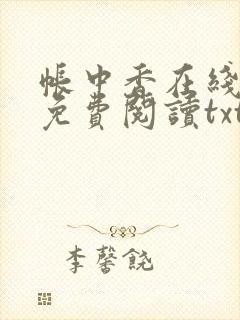 帳中香在綫
免費閱讀txt
李馨饒